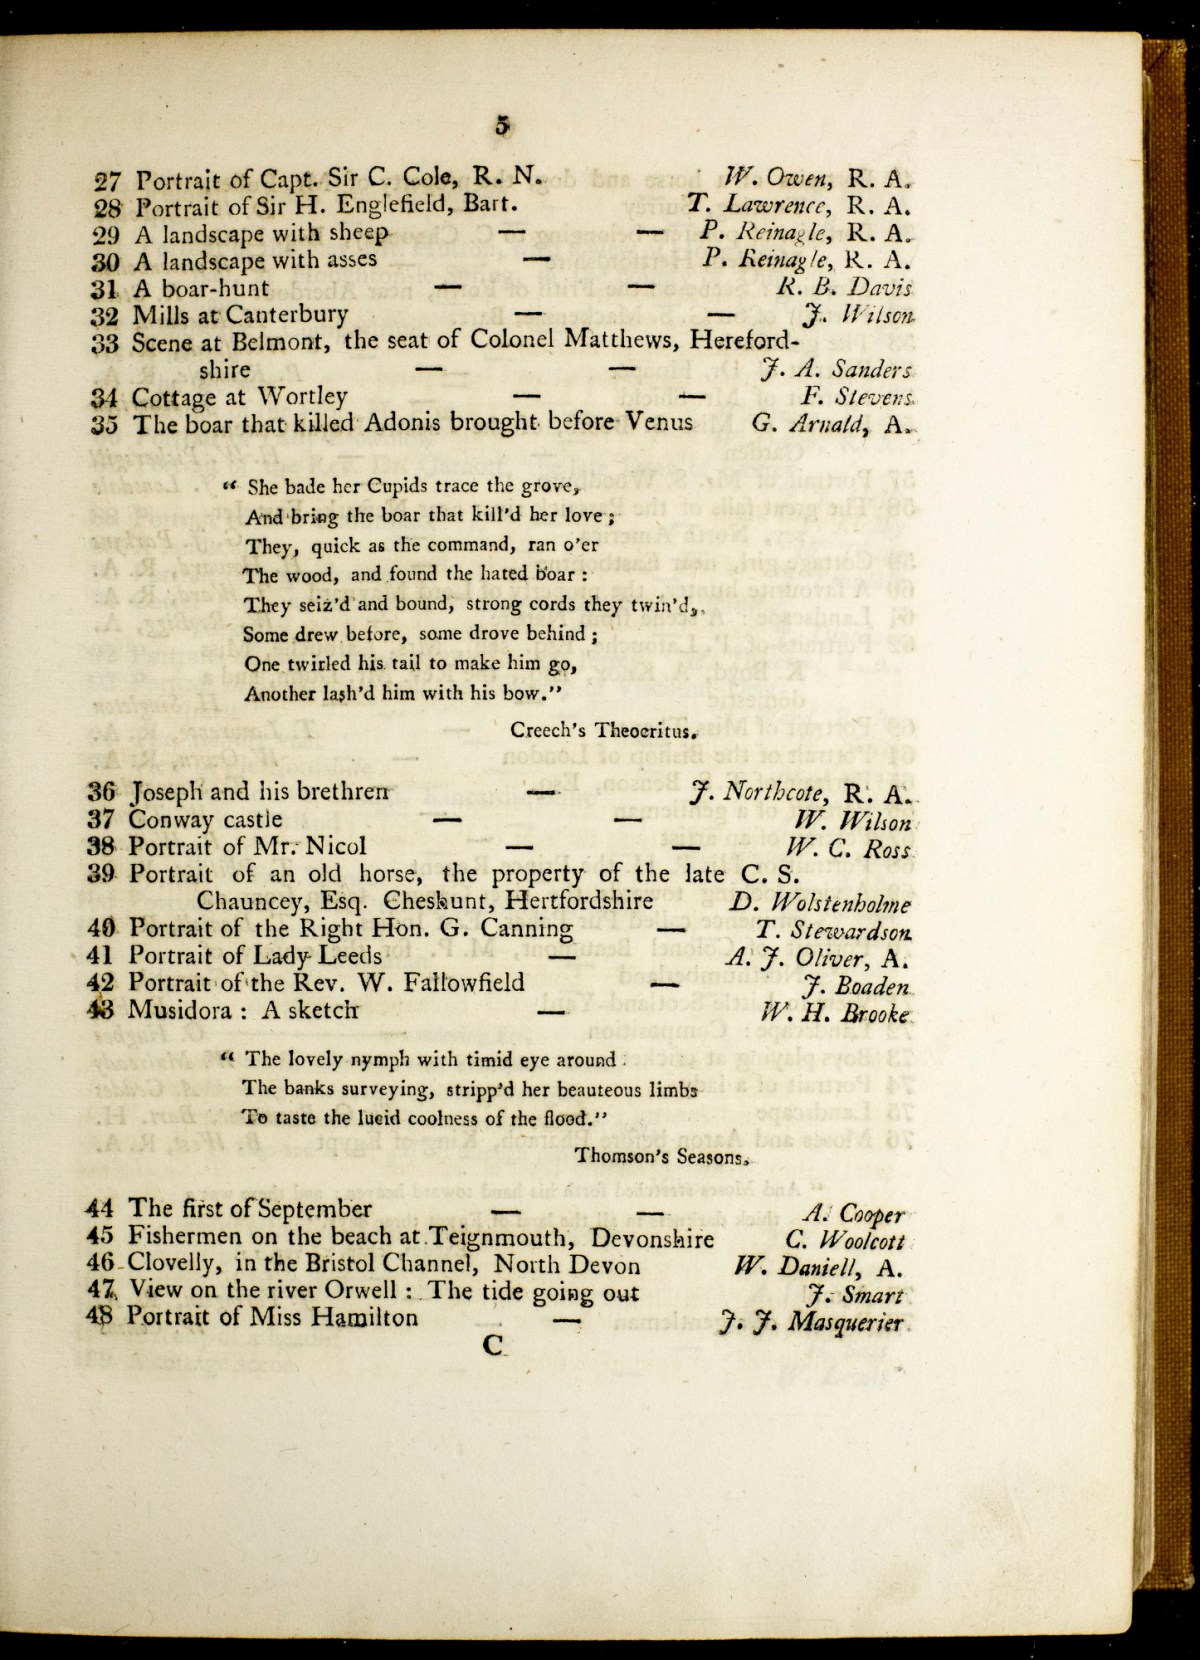 5
27 Portrait of Capt. Sir C. Cole, R. N. W. Owen, R. A.
28 Portrait of Sir H. Englefield, Bart. T. Lawrence, R. A.
29 A landscape with sheep — — P. Reinagle, R. A.
30 A landscape with asses — P. Reinagle, R. A.
31 A boar-hunt — — R. B. Davis
32 Mills at Canterbury — — J. Wilson
33 Scene at Belmont, the seat of Colonel Matthews, Hereford-
shire — — J. A. Sanders
34 Cottage at Wortley — — F. Stevens
35 The boar that killed Adonis brought before Venus G. Arnald, A.
“ She bade her Cupids trace the grove,
And bring the boar that kill'd her love ;
They, quick as the command, ran o'er
The wood, and found the hated boar :
They seiz'd and bound, strong cords they twin'd,
Some drew before, some drove behind ;
One twirled his tail to make him go,
Another lash'd him with his bow.”
Creech's Theocritus.
36 Joseph and his brethren — J. Northcote, R. A.
37 Conway castle — — W. Wilson
38 Portrait of Mr. Nicol — — W. C. Ross
39 Portrait of an old horse, the property of the late C. S.
Chauncey, Esq. Cheshunt, Hertfordshire D. Wolstenholme
40 Portrait of the Right Hon. G. Canning — T. Stewardson
41 Portrait of Lady Leeds — A. J. Oliver, A.
42 Portrait of the Rev. W. Fallowfield — J. Boaden
43 Musidora : A sketch — W. H. Brooke
“ The lovely nymph with timid eye around
The banks surveying, stripp'd her beauteous limbs
To taste the lucid coolness of the flood.”
Thomson's Seasons.
44 The first of September — — A. Cooper
45 Fishermen on the beach at Teignmouth, Devonshire C. Woolcott
46 Clovelly, in the Bristol Channel, North Devon W. Daniell, A.
47 View on the river Orwell : The tide going out J. Smart
48 Portrait of Miss Hamilton — J. J. Masquerier
C